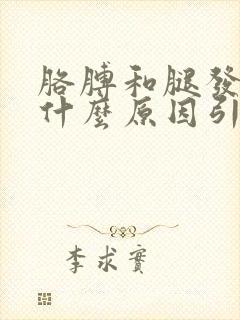 胳膊和腿發
什麼原因引
李求實